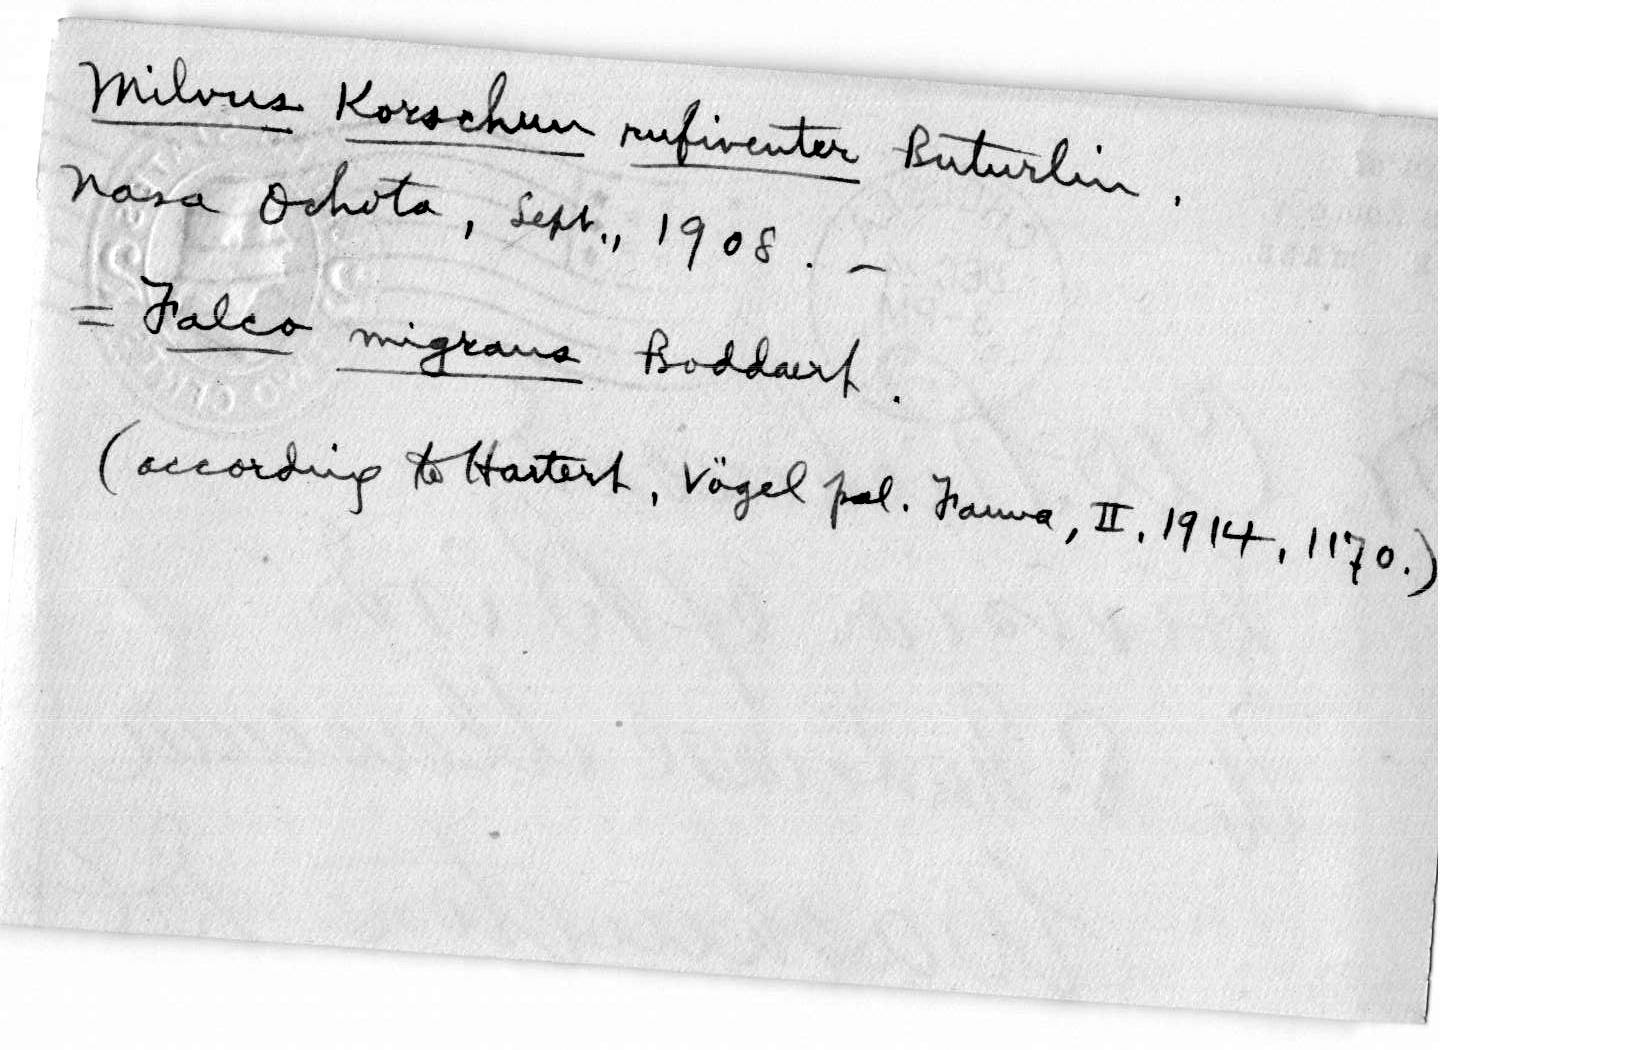 Milvus Korschun rufiventer Buturlin.
Nasa Ochota, Sept., 1908. –
= Falco migrans Boddaert.
(according to Hartert, Vögel pal. Fauna, II, 1914, 1170.)